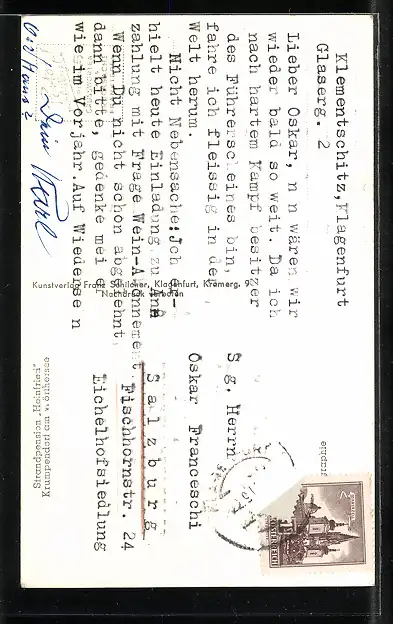 Klementschitz, Klagenfurt
Glaserg. 2
Lieber Oskar, n n wären wir
wieder bald so weit. Da ich
nach hartem Kampf besitzer
des Führerscheines bin,
fahre ich fleissig in de
Welt herum.
Nicht Nebensache: Jch er-
hielt heute Einladung zu An
zahlung mit Frage Wein-Abonnement
Wenn Du nicht schon abgelehnt
dann bitte, gedenke mei e
wie im Vorjahr. Auf Wiederse n
Dein Karl
S g. Herrn
Oskar Franceschi
Salzburg
Fischhornstr. 24
Eichelhofsiedlung
Kunstverlag Franz Schilcher, Klagenfurt, Kramerg. 9
Nachdruck verboten
Strandpension
Krumpendorf am Wörthersee